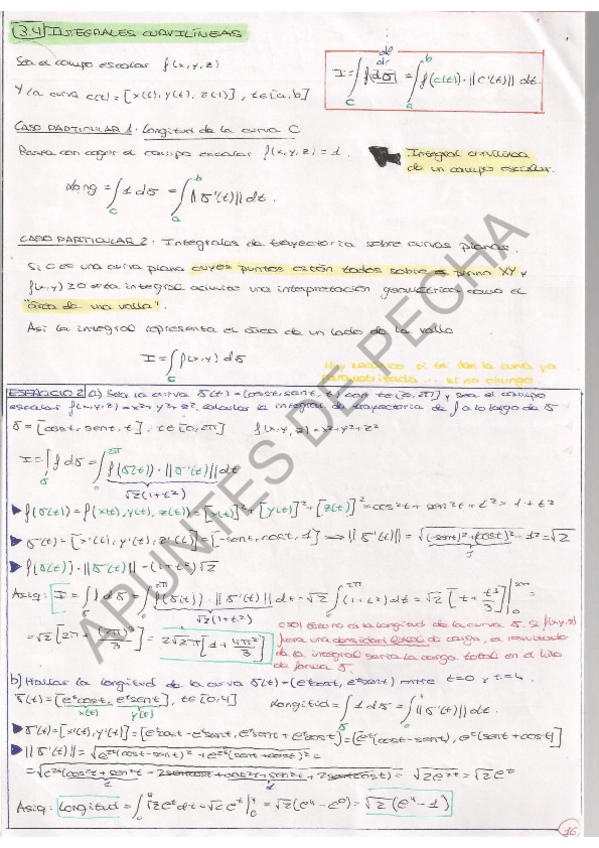 3.4 INTEGRALES CURVILÍNEAS
Sea el campo escalar f(x,y,z)
Y la curva c(t)=[x(t), y(t), z(t)], t∈[a,b]
I=∫_C f dσ = ∫_a^b f(c(t))·||c'(t)|| dt.
CASO PARTICULAR 1. Longitud de la curva C
Basta con coger el campo escalar f(x,y,z)=1.
Integral curvilínea
de un campo escalar.
Long = ∫_C 1 dσ = ∫_a^b ||σ'(t)|| dt.
CASO PARTICULAR 2. Integrales de trayectoria sobre curvas planas.
Si C es una curva plana cuyos puntos están todos sobre el plano XY y
f(x,y)≥0 esta integral admite una interpretación geométrica como el
"área de una valla".
Así la integral representa el área de un lado de la valla
I=∫_C f(x,y) dσ
si te dan la curva ya
parametrizada ... si no chungo.
EJERCICIO 2 a) Sea la curva σ(t)=(cost, sent, t) con t∈[0,2π] y sea el campo
escalar f(x,y,z)=x²+y²+z², calcular la integral de trayectoria de f a lo largo de σ
σ=[cost, sent, t], t∈[0,2π] f(x,y,z)=x²+y²+z²
I=∫_σ f dσ = ∫_0^{2π} f(σ(t))·||σ'(t)|| dt
√2(1+t²)
f(σ(t))=f(x(t), y(t), z(t))=[x(t)]²+[y(t)]²+[z(t)]²=cos²t+sen²t+t²=1+t²
σ'(t)=[x'(t), y'(t), z'(t)]=[-sent, cost, 1] ⟹ ||σ'(t)||=√((-sent)²+(cost)²+1²)=√2
f(σ(t))·||σ'(t)||=(1+t²)√2
Así q: I=∫_σ f dσ=∫_0^{2π} f(σ(t))·||σ'(t)|| dt=√2∫_0^{2π}(1+t²)dt=√2[t+t³/3]_0^{2π}=
√2(1+t²)
=√2[2π+(2π)³/3]=2√2π[1+4π²/3]
OJO! Esto no es la longitud de la curva σ. Si f(x,y,z)
fuera una densidad lineal de carga, el resultado
de la integral sería la carga total en el hilo
de forma σ.
b) Hallar la longitud de la curva σ(t)=(e^t cost, e^t sent) entre t=0 y t=4.
σ(t)=[e^t cost, e^t sent], t∈[0,4] Longitud=∫_σ 1 dσ=∫_0^4 ||σ'(t)|| dt.
x(t) y(t)
σ'(t)=[x'(t), y'(t)]=[e^t cost-e^t sent, e^t sent+e^t cost]=(e^t(cost-sent), e^t(sent+cost))
||σ'(t)||=√(e^{2t}(cost-sent)²+e^{2t}(sent+cost)²)=
=√(e^{2t}(cos²t+sen²t-2sentcost+cos²t+sen²t+2sentcost))=√(2e^{2t})=√2e^t
Así q: Longitud=∫_0^4 √2e^t dt=√2e^t|_0^4=√2(e⁴-e⁰)=√2(e⁴-1)
16
APUNTES DE PECHA